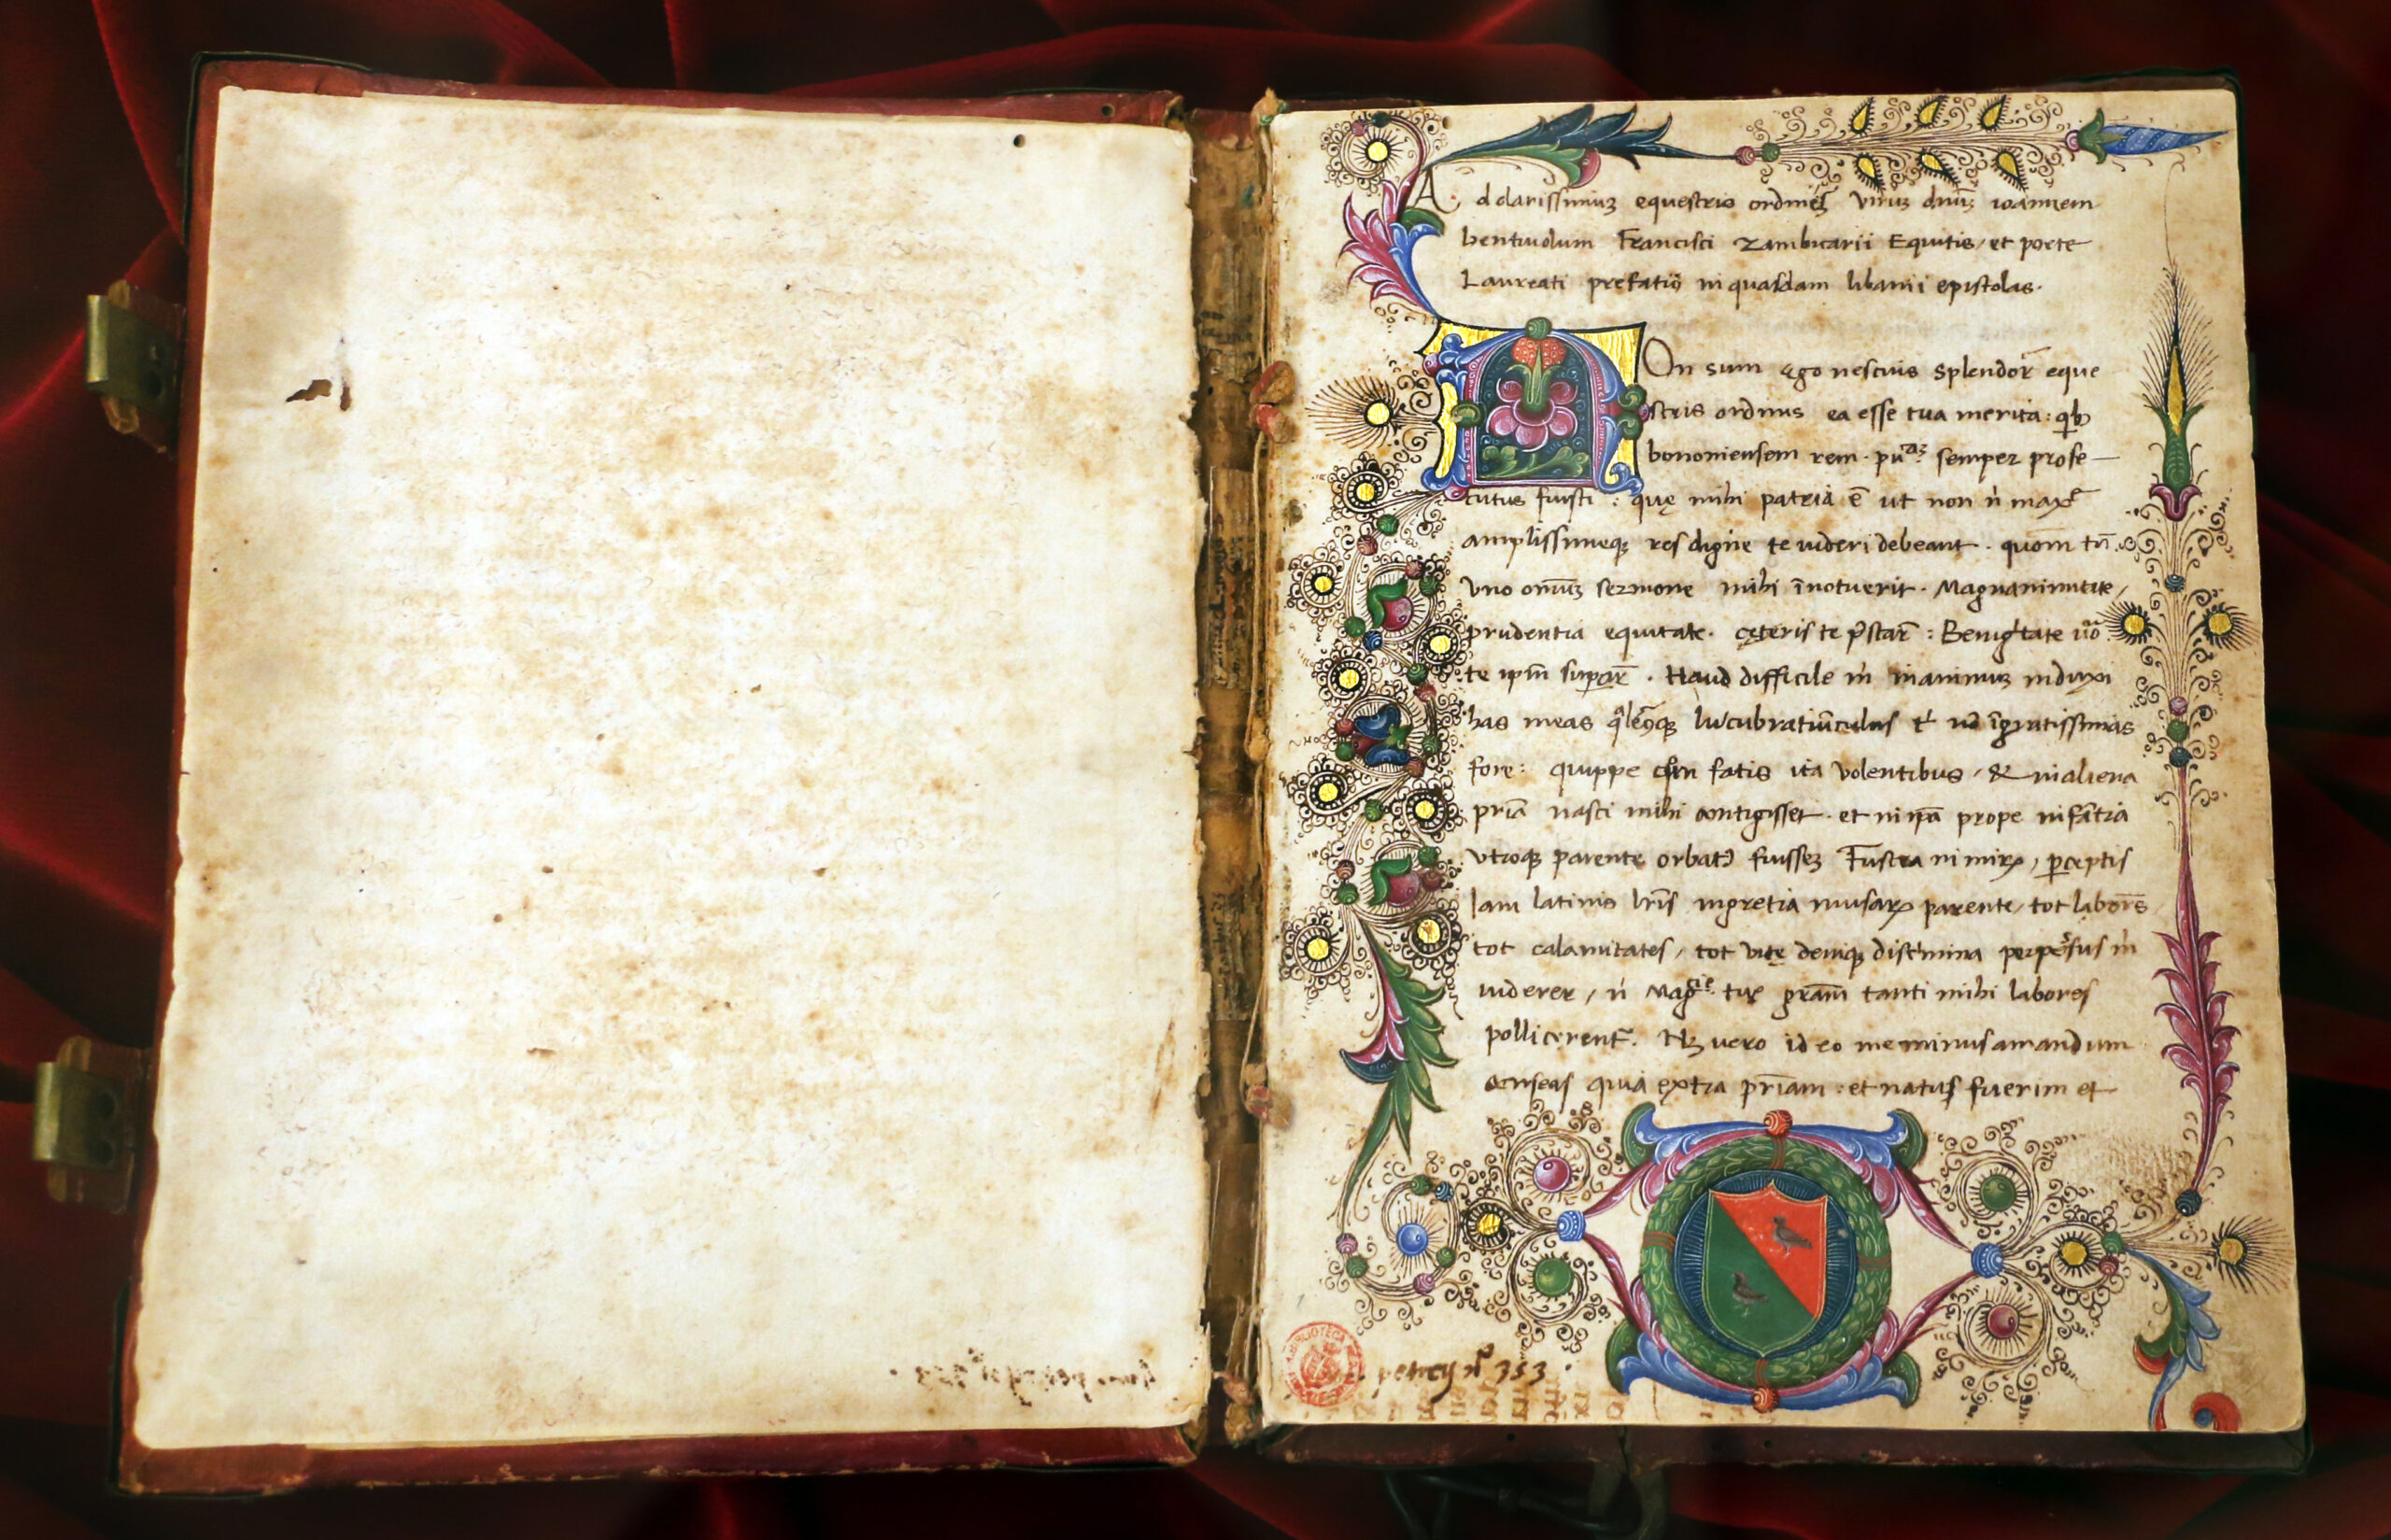 Ad clarissimuz equestris ordinis Viruz dnuz ioannem
bentiuolum Francisci Zambicarii Equitis et poete
Laureati prefatio in quasdam libanii epistolas.
NOn sum ego nescius splendor eque
stris ordinis ea esse tua merita: qb
bononiensem rem. pu semper prose
cutus fuisti: quę mihi patria ē ut non
amplissimeq; res digne te uideri debeant. quom
Vno omniuz sermone mihi īnotuerit. Magnanimitate,
prudentia equitate. cęteris te p̄star̄: Benigtate
te ipm̄ supar̄. Haud difficile in animuz induxi
has meas lucubratiūculas īgratissimas
fore: quippe cum fatis ita volentibus, & in aliena
pria nasci mihi contigisset. et in ipa prope infātia
Vtroq; parente orbat9 fuissez Frustra nimirꝝ, perceptis
Iam latinis lr̄is in gretia musarꝝ parente, tot labores
tot calamitates, tot vitę deniq; discrimina perpessus
uiderer, tuę gram tanti mihi labores
pollicerent. Nz vero ideo me minus amandum
censeas quia extra priam: et natus fuerim et
petrey n° 353.
BIBLIOTECA